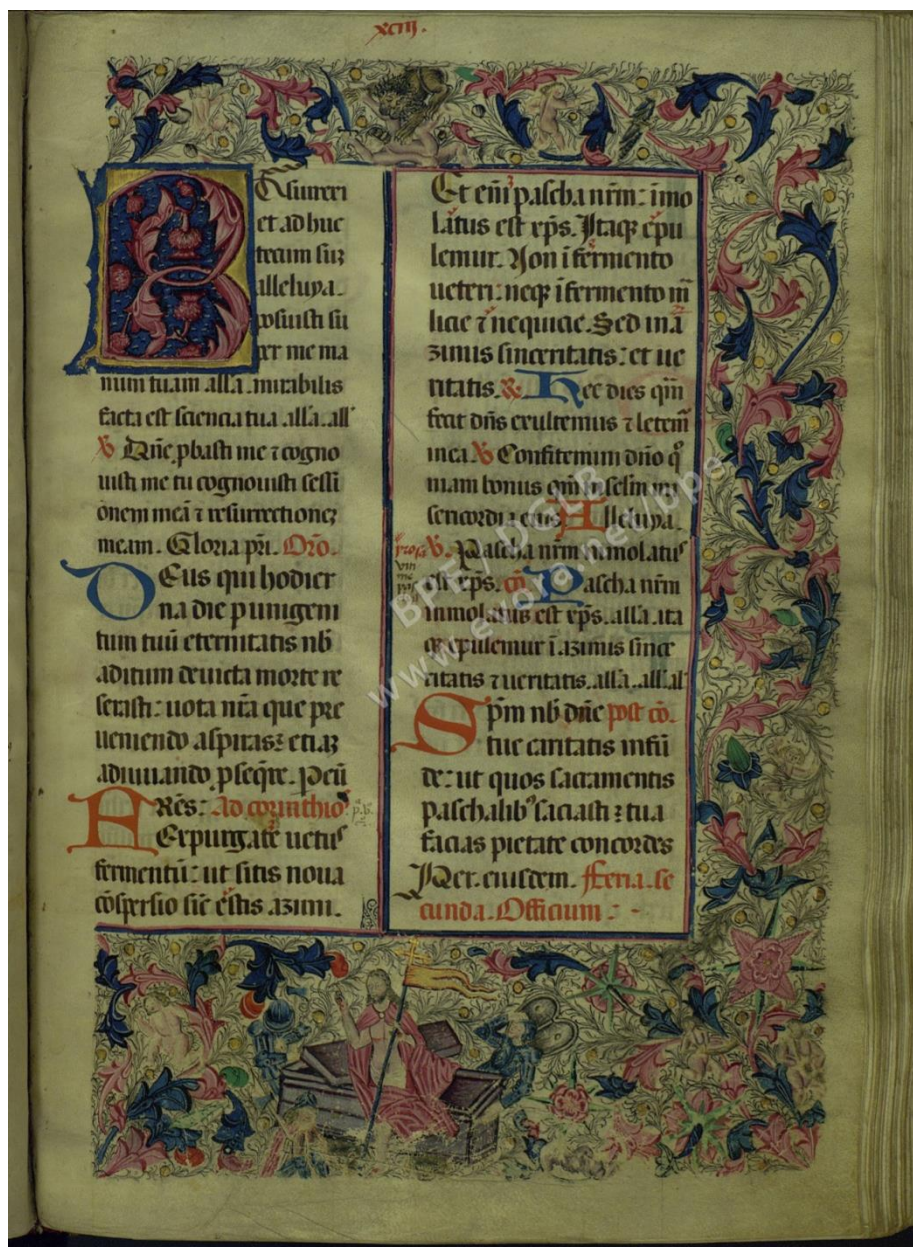 xciij.
Resurrexi
et ad huc
tecum suꝫ
alleluya.
posuisti su
per me ma
num tuam all'a. mirabilis
facta est sciencia tua all'a. all'
℣ Dn̄e ꝓbasti me ⁊ cogno
uisti me tu cognouisti sessi
onem meā ⁊ resurrectioneꝫ
meam. Gloria pr̄i. Or̄o.
Deus qui hodier
na die p unigeni
tum tuū eternitatis nb̄
aditum deuicta morte re
serasti: uota nr̄a que pre
ueniendo aspiras: etiaꝫ
adiuuando ꝓseq̄re. P eū
Fr̄es: Ad corinthios
Expurgate uetus
fermentū: ut sitis noua
cōspersio sic̄ estis azimi.
Et em̄ pascha nr̄m: īmo
latus est xp̄s. Itaqꝫ epu
lemur. Non ī fermento
ueteri: neqꝫ ī fermento m̄
licie ⁊ nequicie. Sed in a
zimis sinceritatis: et ue
ritatis. ℟. Hec dies qm̄
fecit dn̄s exultemus ⁊ letem̄
in ea. ℣ Confitemini dn̄o qº
niam bonus qm̄ in sclm̄ mi
sericordia eius. Alleluya.
℣. Pascha nr̄m immolatus
est xp̄s. cō Pascha nr̄m
immolatus est xp̄s. all'a. ita
qꝫ epulemur ī azimis since
ritatis ⁊ ueritatis. all'a. all'a. al'
Spm̄ nb̄ dn̄e post cō.
tue caritatis infū
de: ut quos sacramentis
paschalibꝰ saciasti: tua
facias pietate concordes
Per. eiusdem. Feria se
cunda. Officium:
BPE / DGLB
www.evora.net/bpe